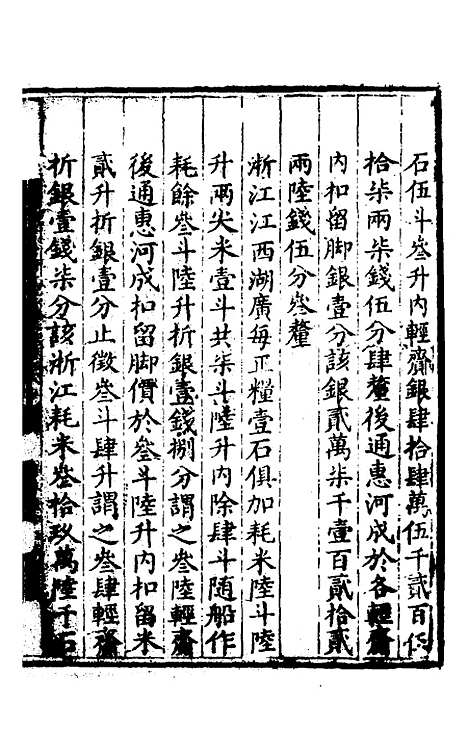 石伍斗叁升內輕齎銀肆拾肆萬伍千貳百伍
拾柒兩柒錢伍分肆釐後通惠河成於各輕齎
內扣留脚銀壹分該銀貳萬柒千壹百貳拾貳
兩陸錢伍分叁釐
浙江江西湖廣每正糧壹石俱加耗米陸斗陸
升兩尖米壹斗共柒斗陸升內除肆斗隨船作
耗餘叁斗陸升折銀壹錢捌分謂之叁陸輕齎
後通惠河成扣留脚價於叁斗陸升內扣留米
貳升折銀壹分止徵叁斗肆升謂之叁肆輕齎
折銀壹錢柒分該浙江耗米叁拾玖萬陸千石